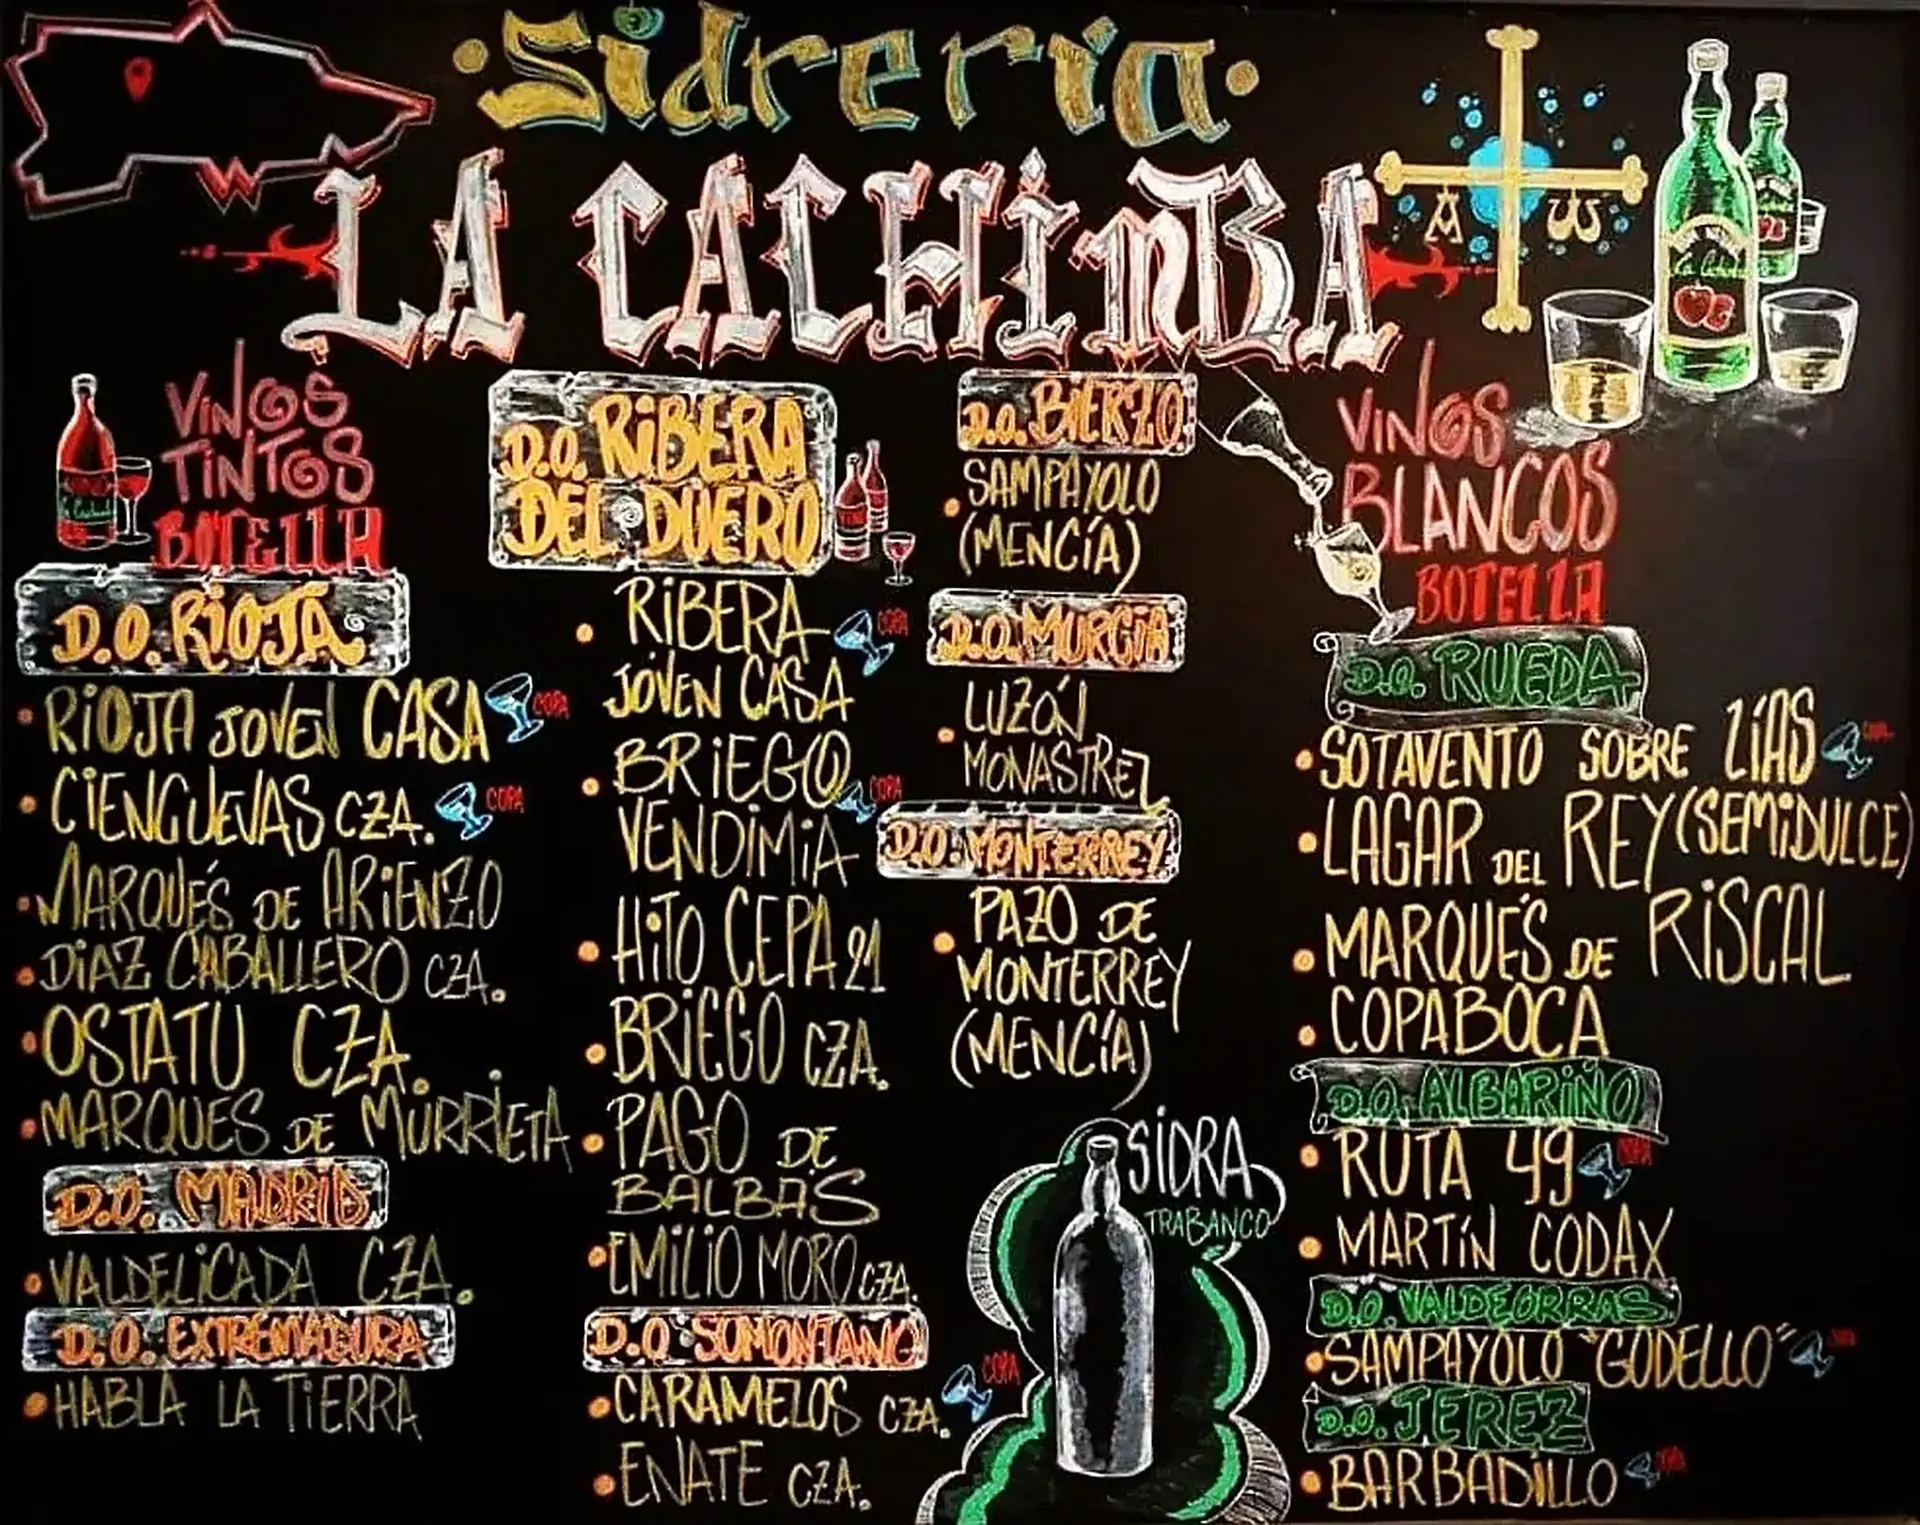 ·Sidrería·
LA CACHIMBA
VINOS
TINTOS
BOTELLA
D.O. RIOJA
• RIOJA JOVEN CASA COPA
• CIENCUEVAS CZA. COPA
• MARQUÉS DE ARIENZO
• DIAZ CABALLERO CZA.
• OSTATU CZA.
• MARQUES DE MURRIETA
D.O. MADRID
• VALDELICADA CZA.
D.O. EXTREMADURA
• HABLA LA TIERRA
D.O. RIBERA
DEL DUERO
VINO
• RIBERA COPA
JOVEN CASA
• BRIEGO COPA
VENDIMIA
• HITO CEPA 21
• BRIEGO CZA.
• PAGO DE
BALBÁS
• EMILIO MORO CZA.
D.O. SOMONTANO
• CARAMELOS CZA. COPA
• ENATE CZA.
D.O. BIERZO
• SAMPAYOLO
(MENCÍA)
D.O. MURCIA
• LUZÓN
MONASTREL
D.O. MONTERREY
• PAZO DE
MONTERREY
(MENCÍA)
SIDRA
TRABANCO
VINOS
BLANCOS
BOTELLA
D.O. RUEDA
• SOTAVENTO SOBRE LÍAS COPA
• LAGAR DEL REY (SEMIDULCE)
• MARQUÉS DE RISCAL
• COPABOCA
D.O. ALBARIÑO
• RUTA 49 COPA
• MARTÍN CODAX
D.O. VALDEORRAS
• SAMPAYOLO "GODELLO"
D.O. JEREZ
• BARBADILLO COPA